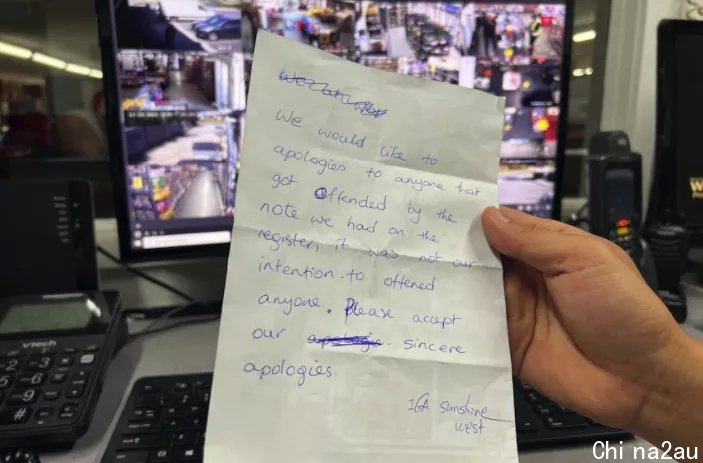 We would like to
apologies to anyone that
got Offended by the
note we had on the
register, it was not our
intention to offened
anyone. Please accept
our sincere
apologies
IGA sunshine
west
vtech
Chi na2au